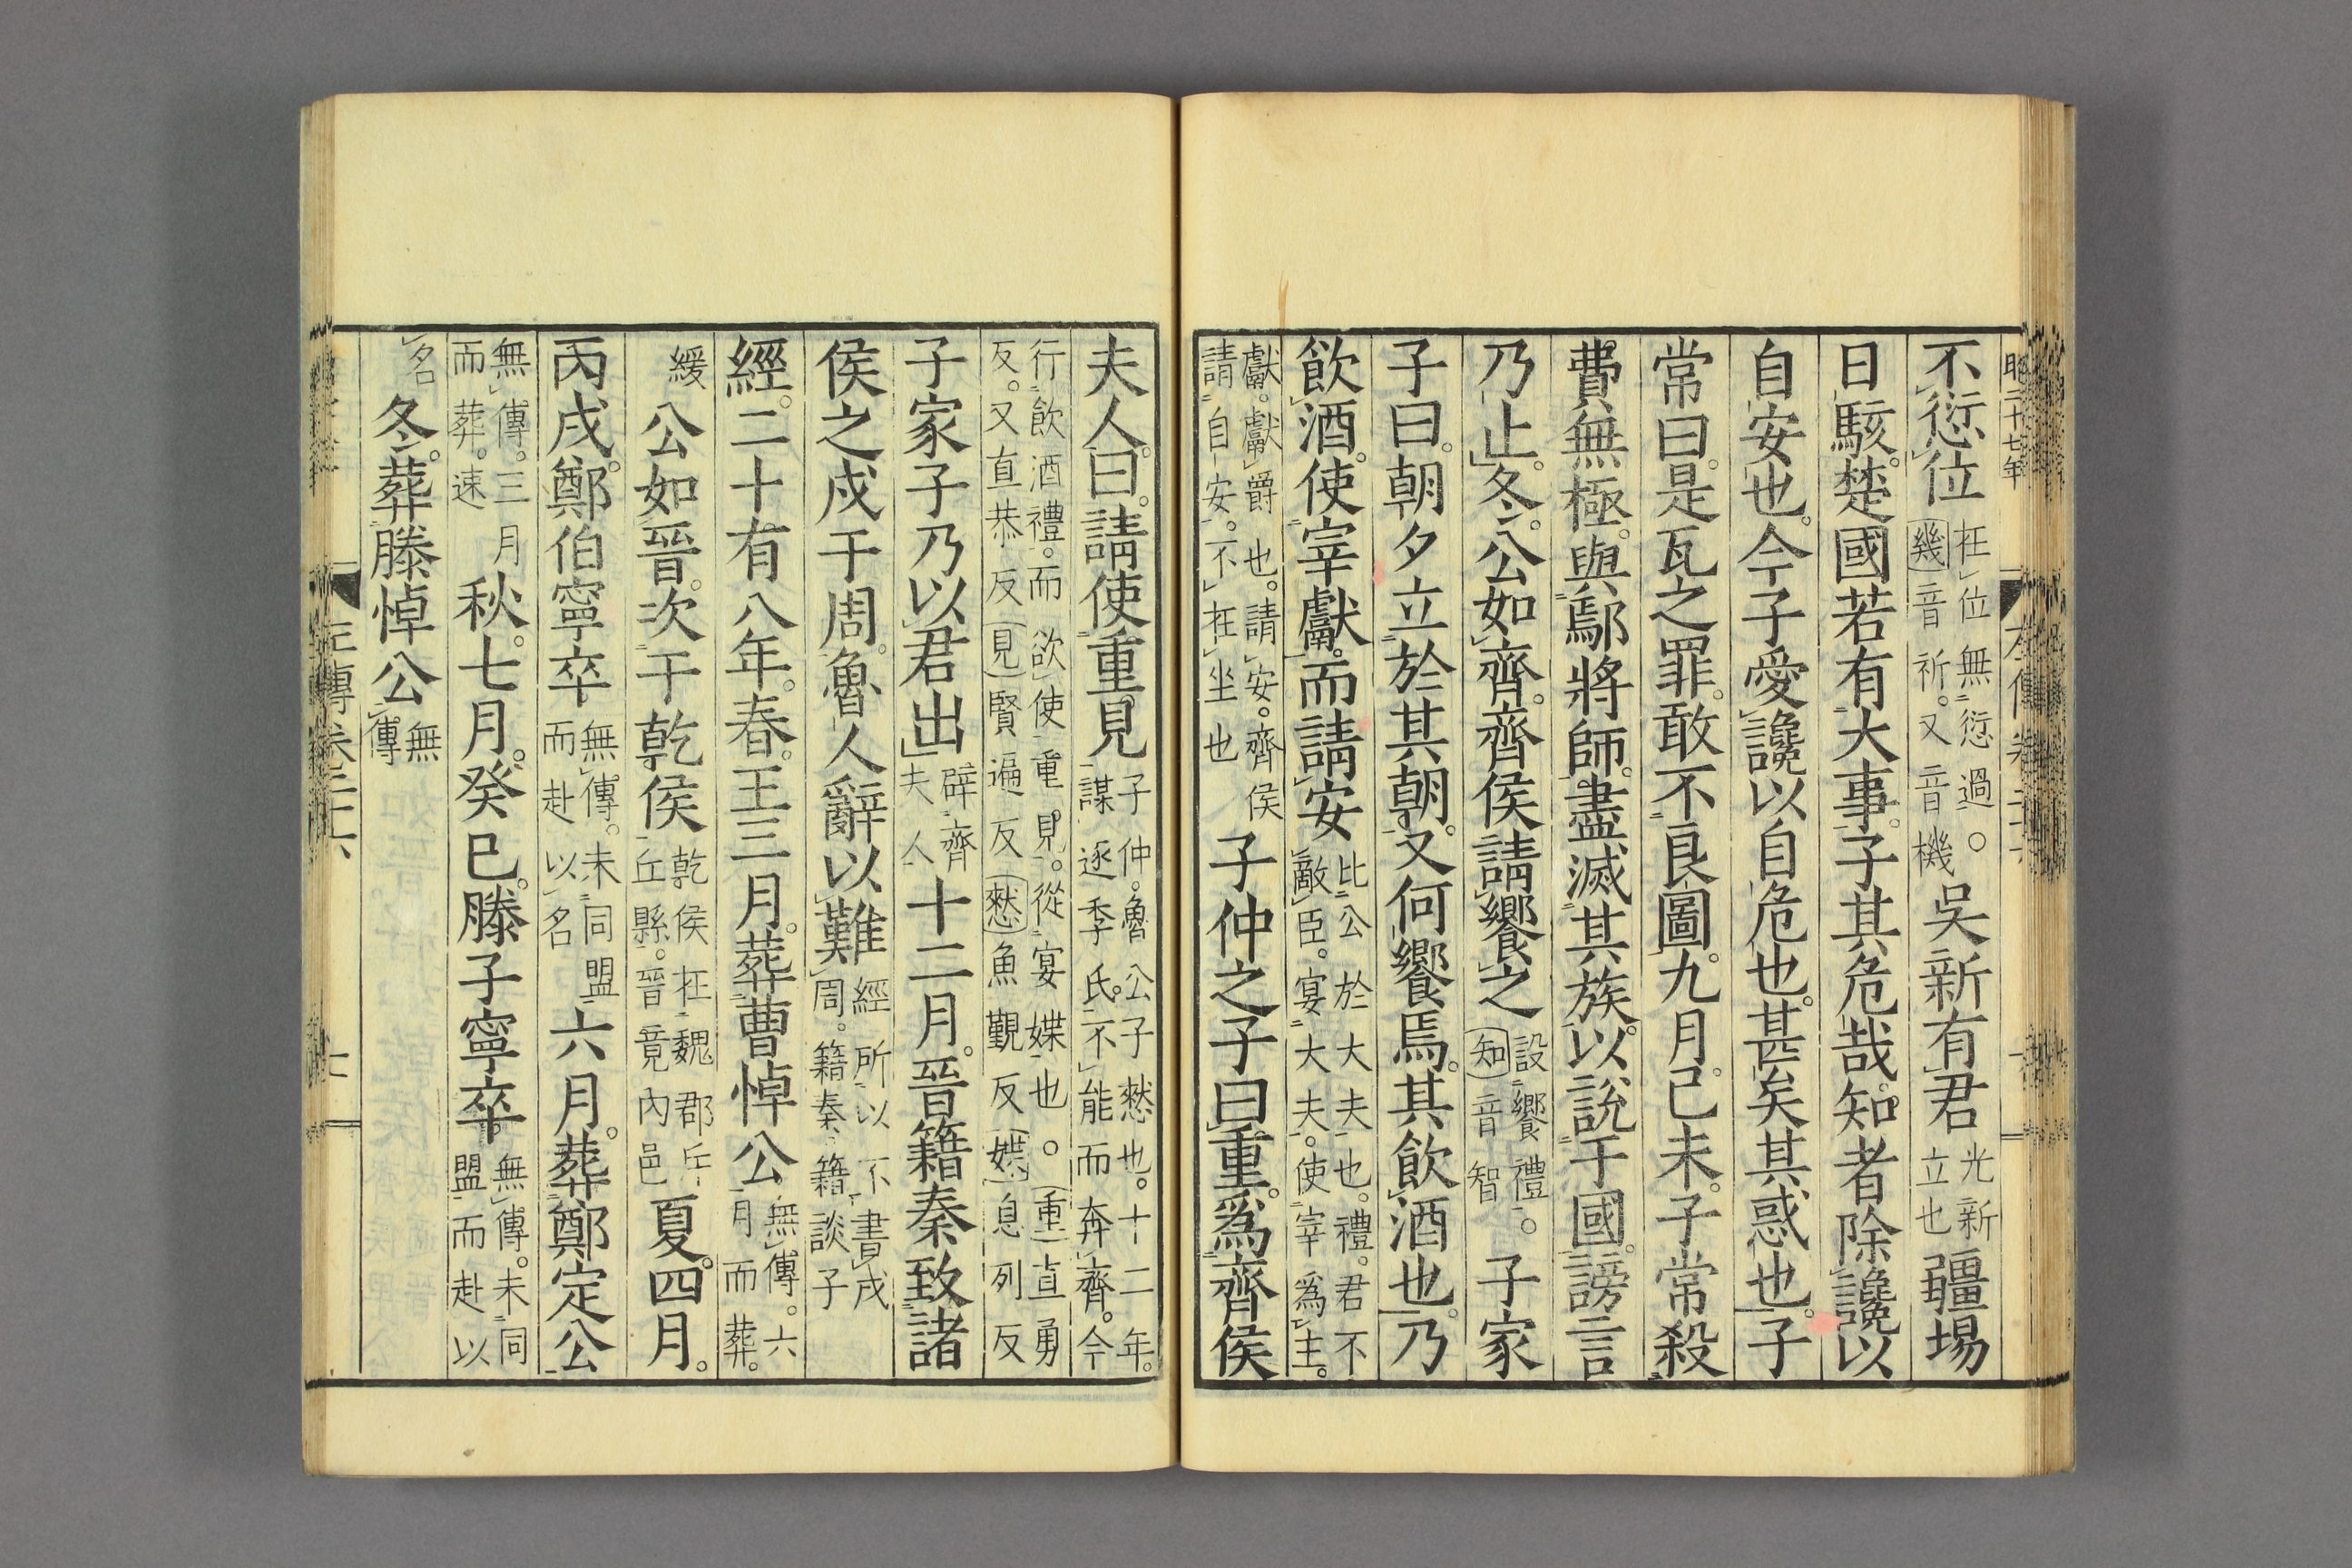 昭二十七年
不愆位在位無愆過。幾音祈。又音機吳新有君光新立也疆埸
日駭。楚國若有大事。子其危哉。知者除讒以
自安也。今子愛讒以自危也。甚矣其惑也。子
常曰。是瓦之罪。敢不良圖。九月。己未。子常殺
費無極。與鄢將師。盡滅其族。以說于國。謗言
乃止。冬。公如齊。齊侯請饗之設饗禮。知音智子家
子曰。朝夕立於其朝。又何饗焉。其飲酒也。乃
飲酒。使宰獻。而請安比公於大夫也。禮。君不敵臣。宴大夫。使宰為主。
獻。獻爵也。請安。齊侯請自安。不在坐也子仲之子曰重。爲齊侯
夫人。曰。請使重見子仲。魯公子憖也。十二年。謀逐季氏。不能而奔齊。今
行飲酒禮。而欲使重見。從宴媟也。重直勇反。又直恭反見賢遍反憖魚觀反媟息列反
子家子乃以君出辟齊夫人十二月。晉籍秦致諸
侯之戍于周。魯人辭以難經所以不書戍周。籍秦籍談子
經。二十有八年。春。王三月。葬曹悼公無傳。六月而葬。
緩公如晉。次于乾侯乾侯在魏郡斥丘縣。晉竟內邑夏。四月。
丙戌。鄭伯寧卒無傳。未同盟而赴以名六月。葬鄭定公
無傳。三月而葬。速秋。七月。癸巳。滕子寧卒。無傳。未同盟而赴以
名冬。葬滕悼公無傳